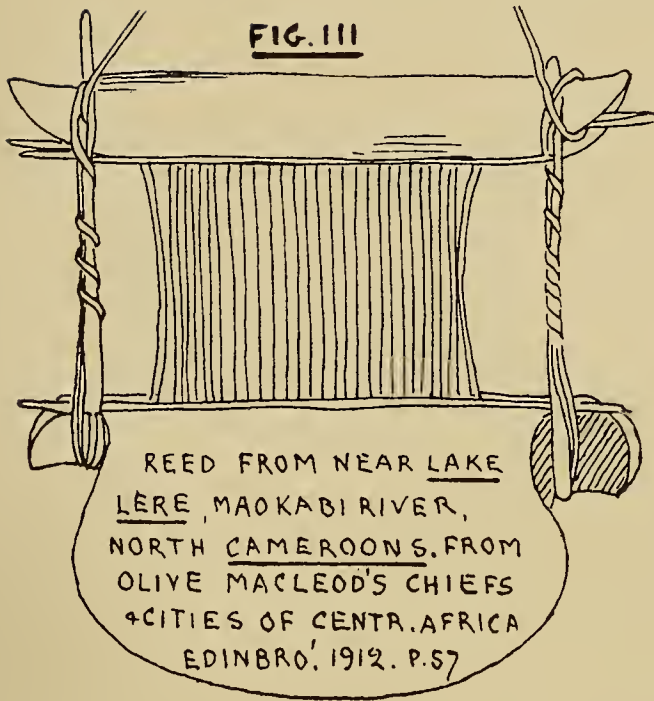 FIG. III
REED FROM NEAR LAKE
LERE, MAOKABI RIVER,
NORTH CAMEROONS. FROM
OLIVE MACLEOD'S CHIEFS
& CITIES OF CENTR. AFRICA
EDINBRO'. 1912. P.57